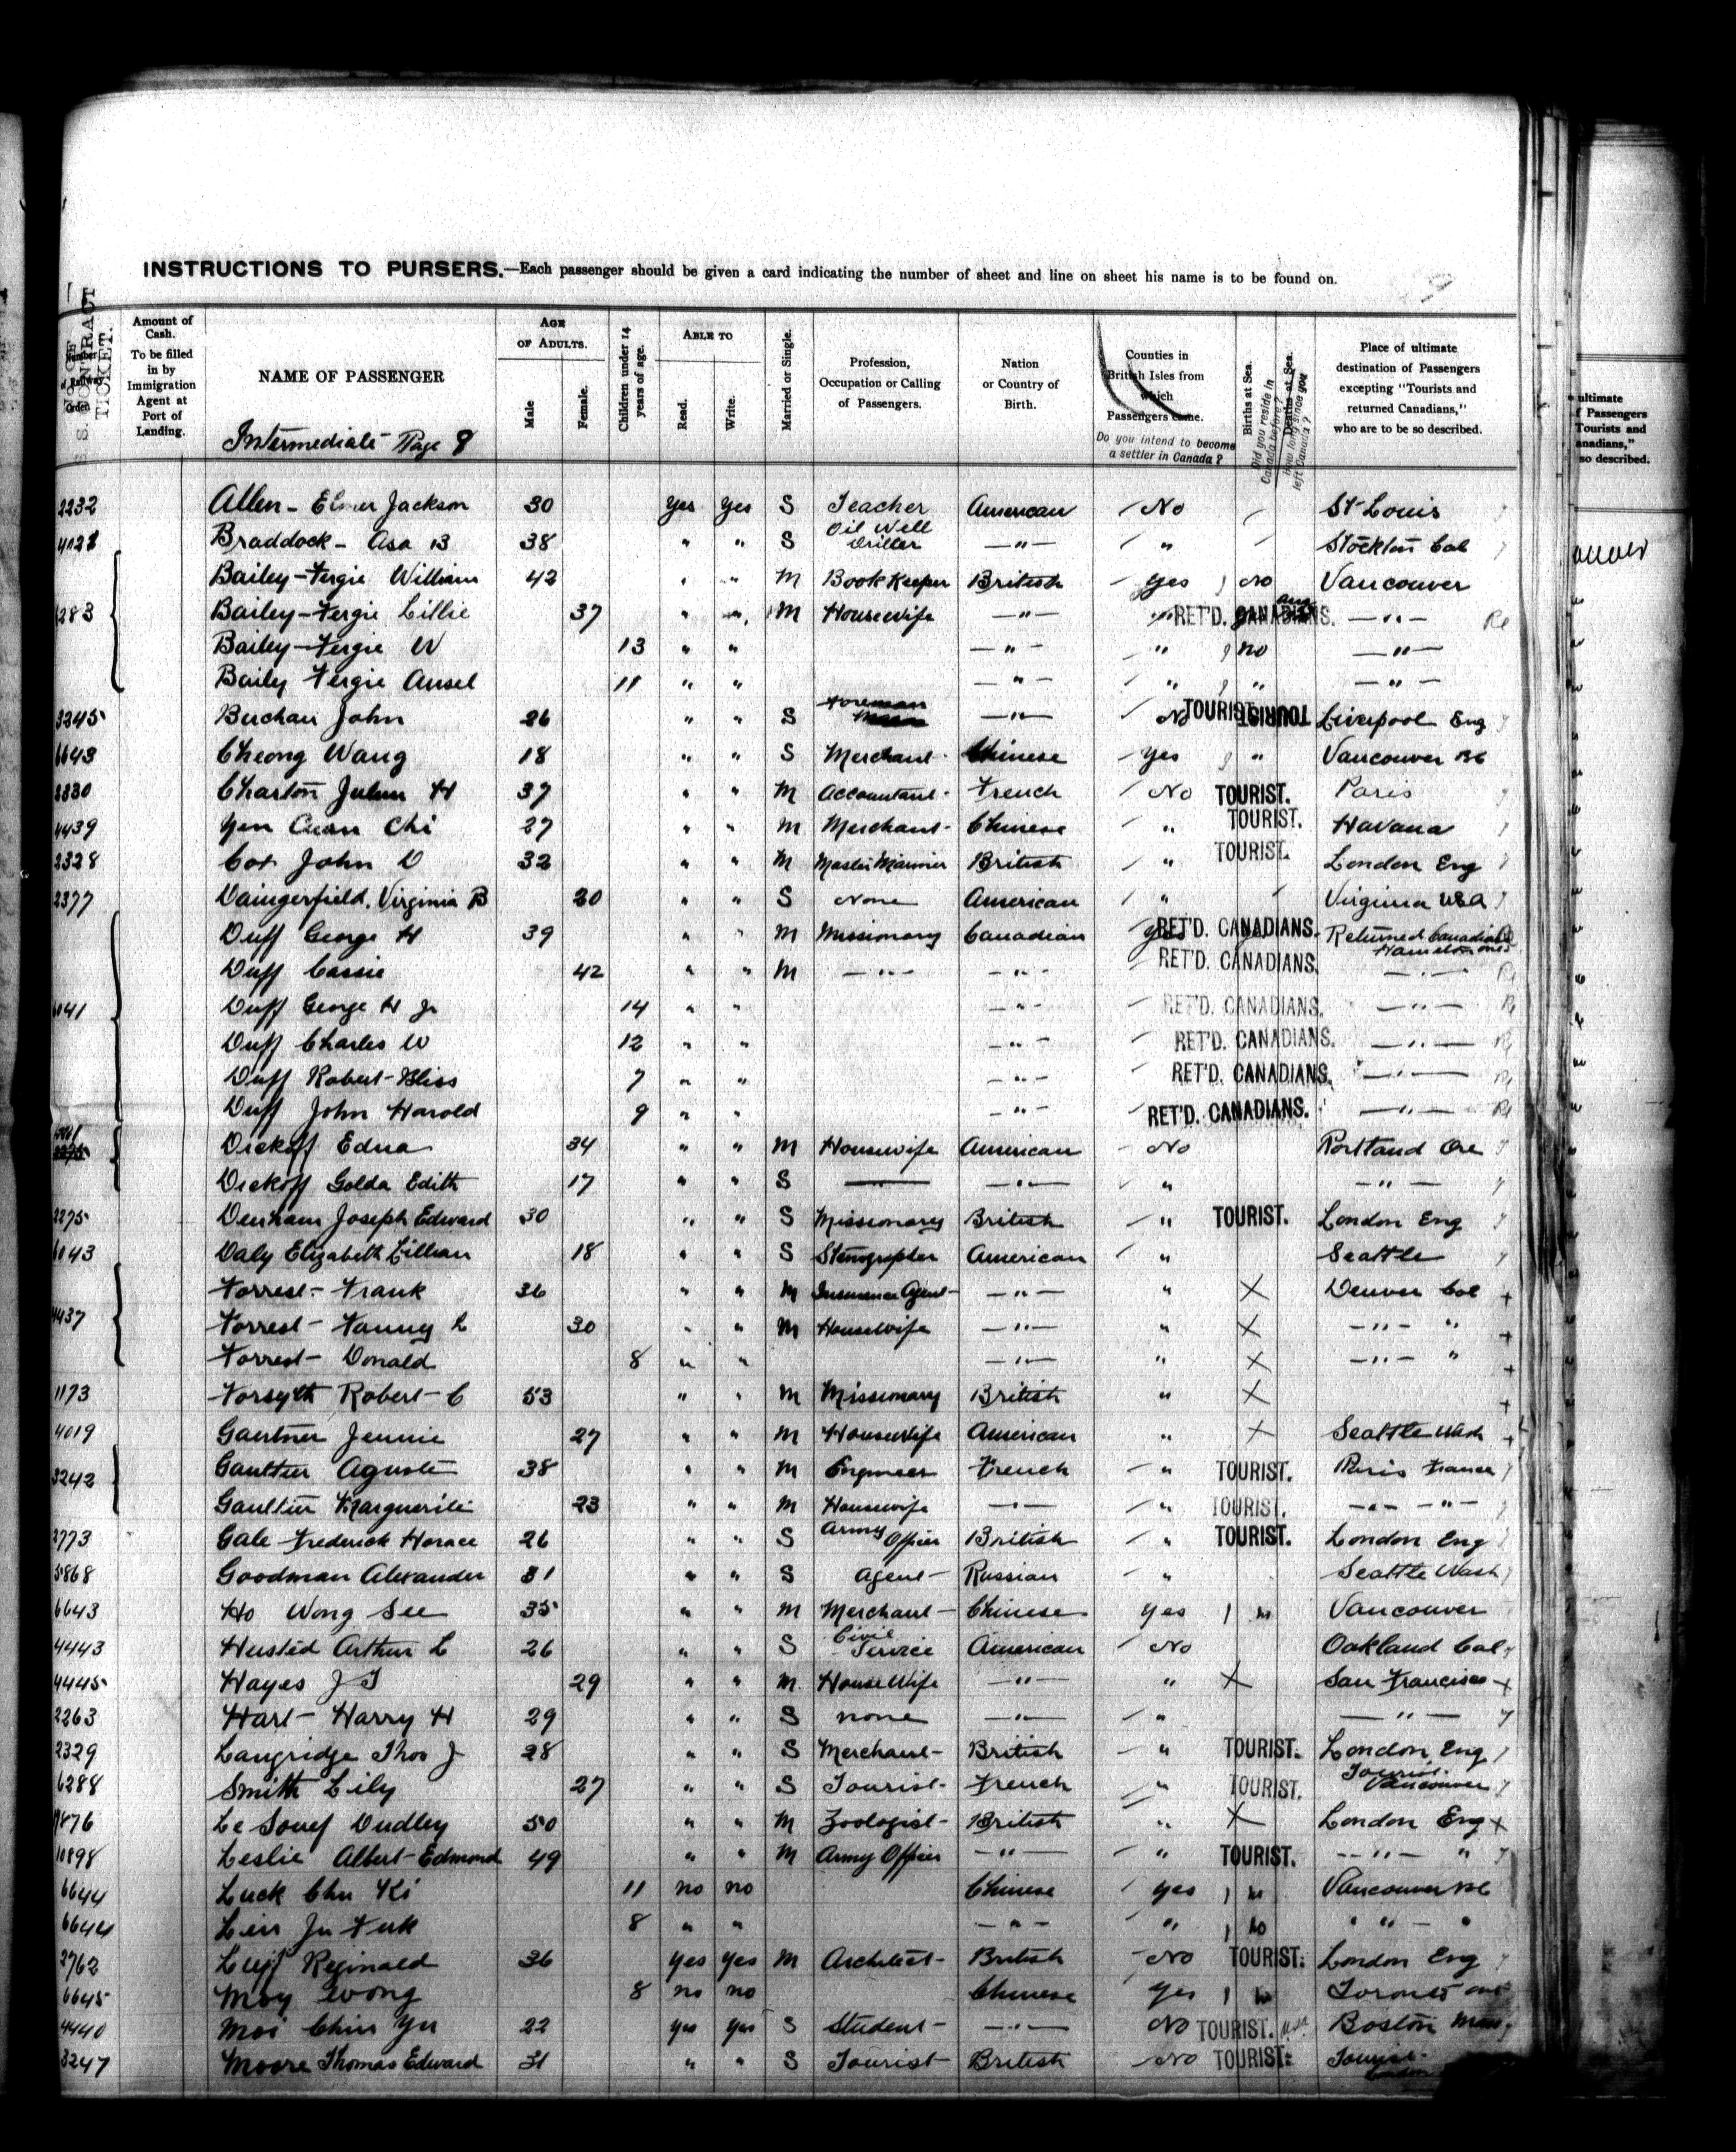 INSTRUCTIONS TO PURSERS.—Each passenger should be given a card indicating the number of sheet and line on sheet his name is to be found on.
CONTRACT TICKET.
Amount of Cash. To be filled in by Immigration Agent at Port of Landing.
NAME OF PASSENGER
Intermediate Page 8
AGE OF ADULTS.
Male
Female.
Children under 14 years of age.
ABLE TO
Read.
Write.
Married or Single.
Profession, Occupation or Calling of Passengers.
Nation or Country of Birth.
Counties in British Isles from which Passengers came.
Do you intend to become a settler in Canada?
Births at Sea.
Did you reside in Canada before?
Deaths at Sea.
How long since you left Canada?
Place of ultimate destination of Passengers excepting "Tourists and returned Canadians," who are to be so described.
ultimate
f Passengers
Tourists and
anadians,"
so described.
2232 Allen - Elmer Jackson 30 Yes Yes S Teacher American No St Louis
Braddock - Asa B 38 " " S Oil Well Driller —"— " Stockton Cal
Bailey-Fergie William 42 " " M Book Keeper British Yes no Vancouver
283 Bailey-Fergie Lillie 37 " " M Housewife —"— " RET'D. CANADIANS. —"—
Bailey-Fergie W 13 " " —"— " no —"—
Baily Fergie Ansel 11 " " —"— " " —"—
3245 Buchan John 26 " " S Foreman —"— No TOURIST TOURIST Liverpool Eng
6643 Cheong Wang 18 " " S Merchant Chinese Yes " Vancouver BC
3330 Charton H 37 " " M Accountant French No TOURIST. Paris
4439 Yen Cuan Chi 27 " " M Merchant Chinese " TOURIST. Havana
2328 Cox John D 32 " " M Master Mariner British " TOURIST. London Eng
2377 Daingerfield, Virginia B 20 " " S None American " Virginia USA
Duff George H 39 " " M Missionary Canadian Yes RET'D. CANADIANS. Returned Canadian Hamilton Ont
Duff Cassie 42 " " M —"— —"— RET'D. CANADIANS. —"—
6041 Duff George H Jr 14 " " —"— RET'D. CANADIANS. —"—
Duff Charles W 12 " " —"— RET'D. CANADIANS. —"—
Duff Robert Bliss 7 " " —"— RET'D. CANADIANS. —"—
Duff John Harold 9 " " —"— RET'D. CANADIANS. —"—
Dickoff Edna 34 " " M Housewife American No Portland Ore
Dickoff Golda Edith 17 " " S —— —"— " —"—
2275 Denham Joseph Edward 30 " " S Missionary British " TOURIST. London Eng
6043 Daly Elizabeth Lillian 18 " " S Stenographer American " Seattle
Forrest - Frank 36 " " M Insurance Agent —"— " X Denver Col +
4437 Forrest - Fanny L 30 " " M Housewife —"— " X —"— " +
Forrest - Donald 8 " " —"— " X —"— " +
1173 Forsyth Robert C 53 " " M Missionary British " X +
4019 Gaertner Jennie 27 " " M Housewife American " X Seattle Wash +
3242 Gaultier Aguste 38 " " M Engineer French " TOURIST. Paris France
Gaultier Marguerite 23 " " M Housewife —"— " TOURIST. —"— —"—
2773 Gale Frederick Horace 26 " " S Army Officer British " TOURIST. London Eng
5868 Goodman Alexander 31 " " S Agent Russian " Seattle Wash
6643 Ho Wong See 35 " " M Merchant Chinese Yes Vancouver
4443 Husted Arthur L 26 " " S Civil Service American No Oakland Cal
4445 Hayes J T 29 " " M. House Wife —"— " X San Francisco +
2263 Hart - Harry H 29 " " S none —"— " —"—
2329 Langridge Thos J 28 " " S Merchant British " TOURIST. London Eng
6288 Smith Lily 27 " " S Tourist French " TOURIST. Tourist Vancouver
Le Souef Dudley 50 " " M Zoologist British " X London Eng +
10898 Leslie Albert Edmond 49 " " M Army Officer —"— " TOURIST. —"— "
6644 Luck Chu Ki 11 no no Chinese Yes Vancouver BC
6644 8 " " —"— " no " " "
2762 Reginald 36 Yes Yes M Architect British No TOURIST. London Eng
6645 Moy Wong 8 no no Chinese Yes Toronto Ont
4440 Moi Chin Yu 22 yes yes S Student —"— No TOURIST. USA Boston Mass
3247 Moore Thomas Edward 31 " " S Tourist British No TOURIST. Tourist London